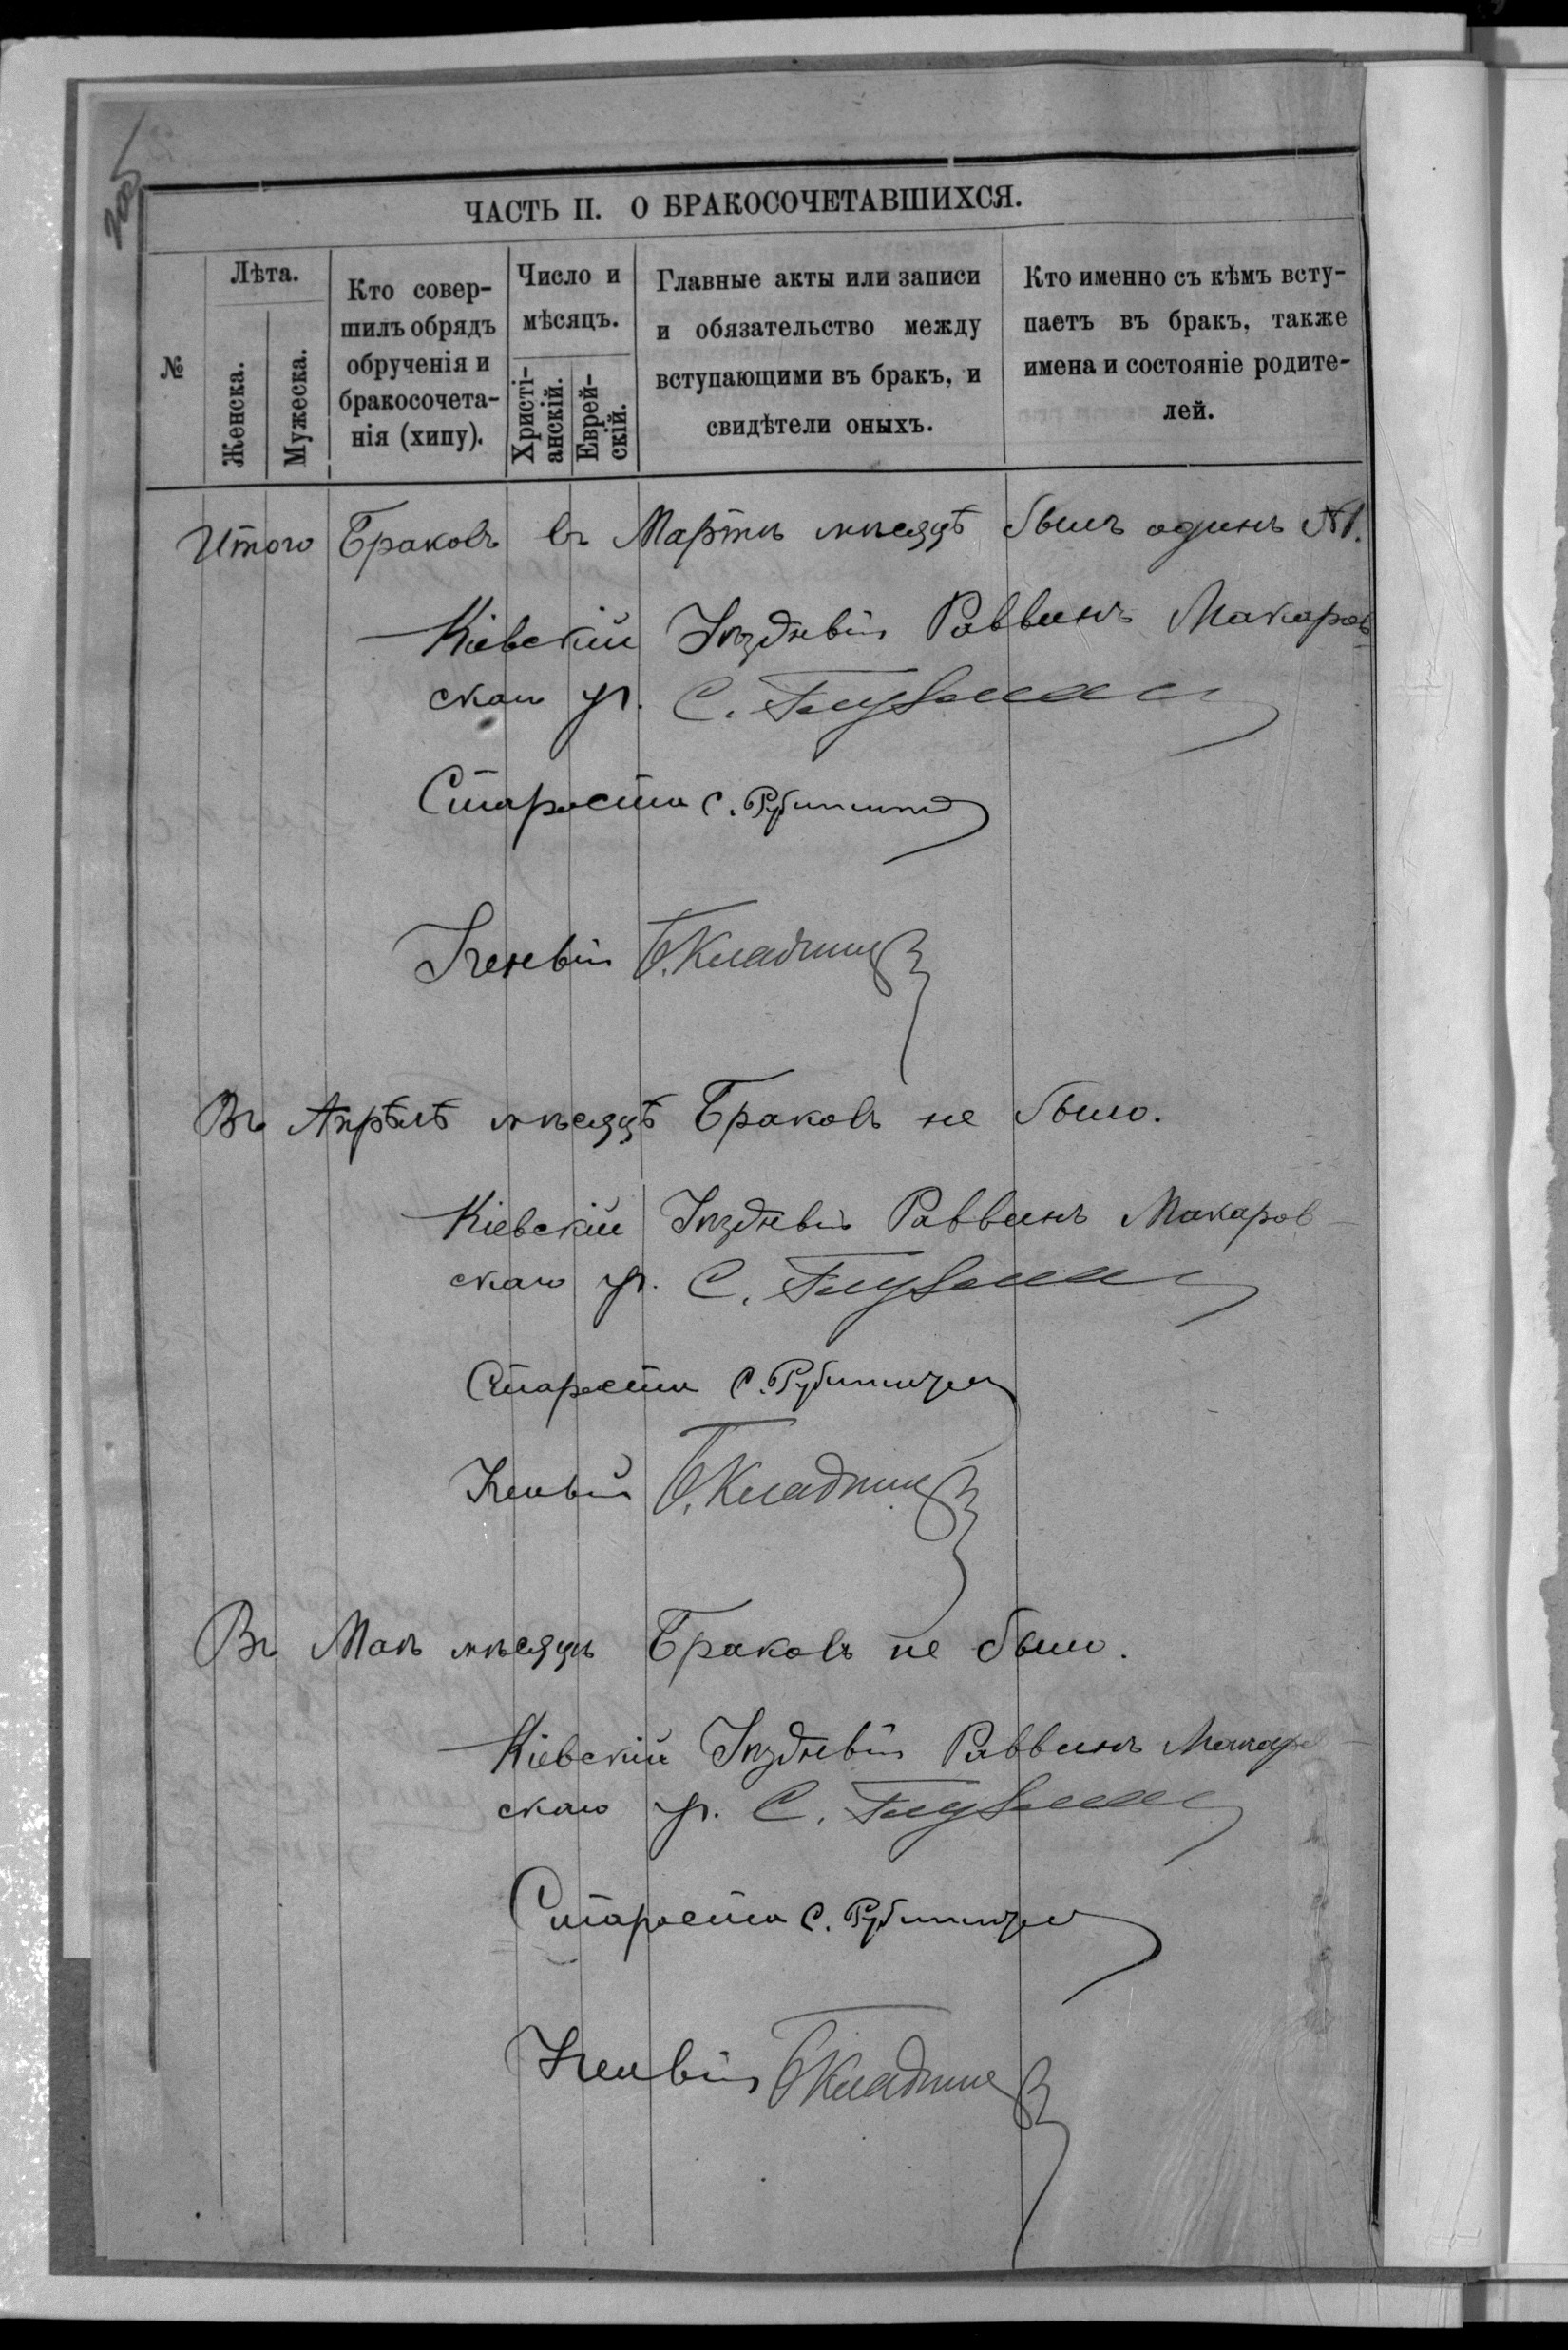 ЧАСТЬ II. О БРАКОСОЧЕТАВШИХСЯ.
№
Лѣта.
Женска.
Мужеска.
Кто совер-
шилъ обрядъ
обрученія и
бракосочета-
нія (хипу).
Число и
мѣсяцъ.
Христі-
анскій.
Еврей-
скій.
Главные акты или записи
и обязательство между
вступающими въ бракъ, и
свидѣтели оныхъ.
Кто именно съ кѣмъ всту-
паетъ въ бракъ, также
имена и состояніе родите-
лей.
Итого Браковъ въ Мартѣ мѣсяцѣ былъ одинъ №1.
Кіевскій Уѣздный Раввинъ Макаров
скаго уч.
Староста С.
Ученый
Въ Апрѣлѣ мѣсяцѣ Браковъ не было.
Кіевскій Уѣздный Раввинъ Макаров-
скаго уч.
Староста С.
Ученый
Въ Маѣ мѣсяцѣ Браковъ не было.
Кіевскій Уѣздный Раввинъ
скаго уч.
Староста С.
Ученый